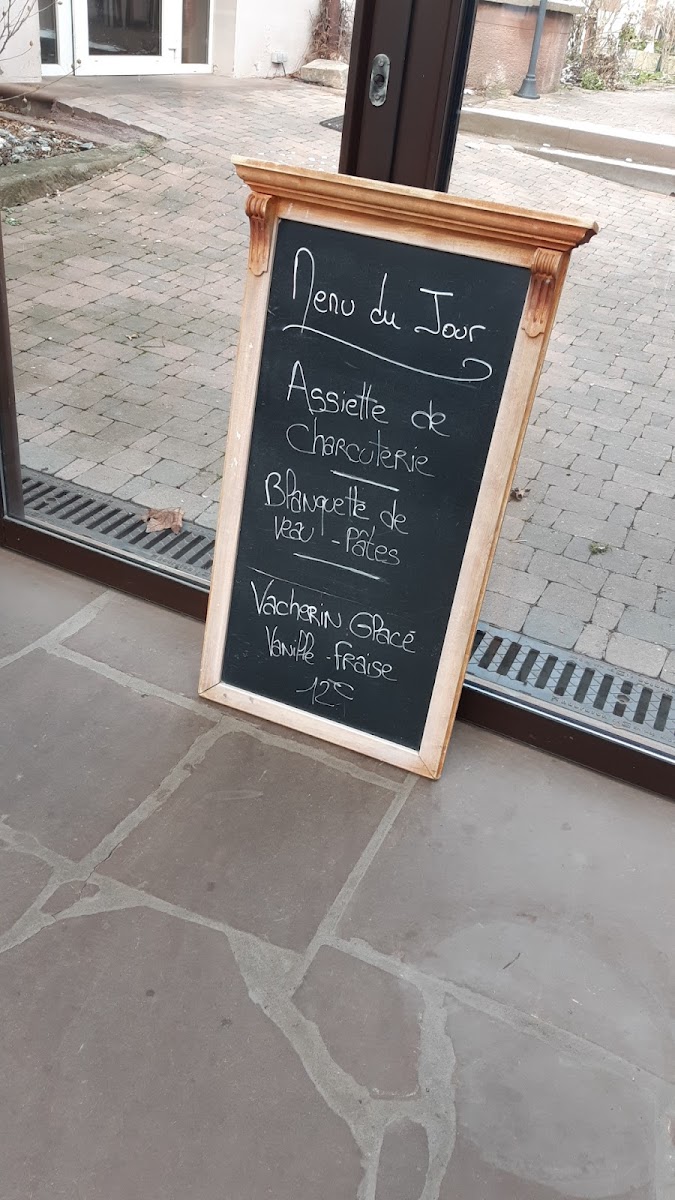 Menu du Jour
Assiette de
Charcuterie
Blanquette de
Veau - Pâtes
Vacherin Glacé
Vanille - fraise
12€